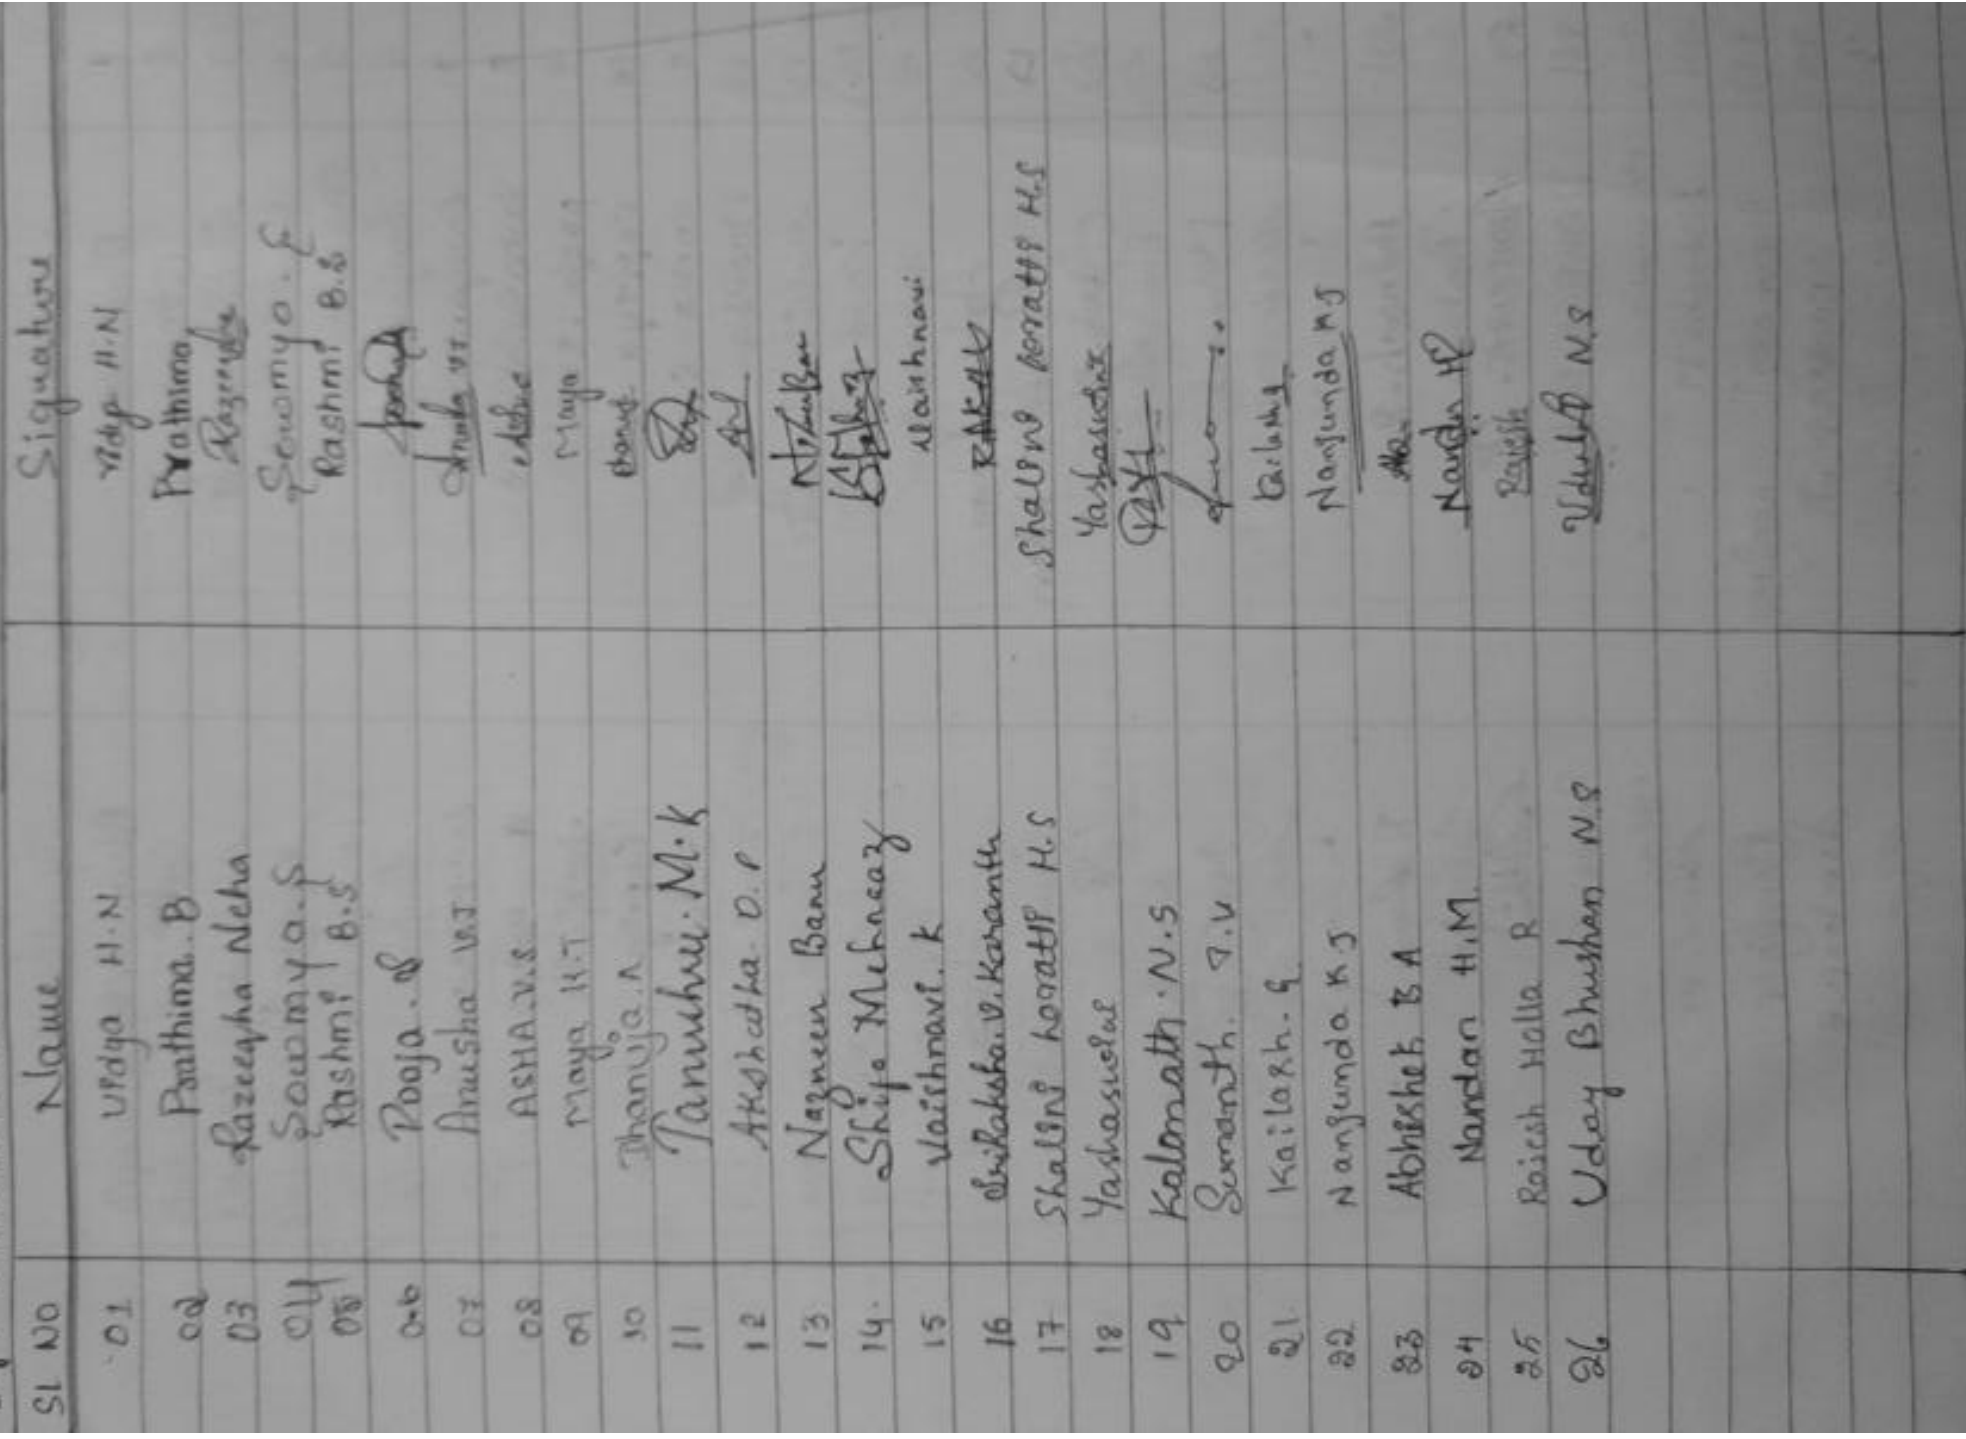 SL NO Name Signature
01 Vidya H.N Vidya H.N
02 Prathima.B Prathima
03 Razeeqha Neha Razeeqha
04 Sowmya.S Sowmya.S
05 Rashmi B.S Rashmi B.S
06 Pooja.S
07 Anusha V.J Anusha V.J
08 ASHA.V.S Asha
09 Maya H.T Maya
10 Dhanuja.A
11 Tanushree.M.K
12 Akshatha D.P
13 Nazneen Banu
14. Shifa Mehnaaz
15 Vaishnavi.K Vaishnavi
16 Sriraksha.V.Karanth
17 Shalini Loratti H.S Shalini Loratti H.S
18 Yashaswini Yashaswini
19 Kalanath.N.S
20 Sumanth. T.V
21 Kailash.G Kailash
22 Nanjunda K J Nanjunda K J
23 Abhishek B A
24 Nandan H.M Nandan HM
25 Rajesh Holla R Rajesh
26 Uday Bhushan N.S N.S